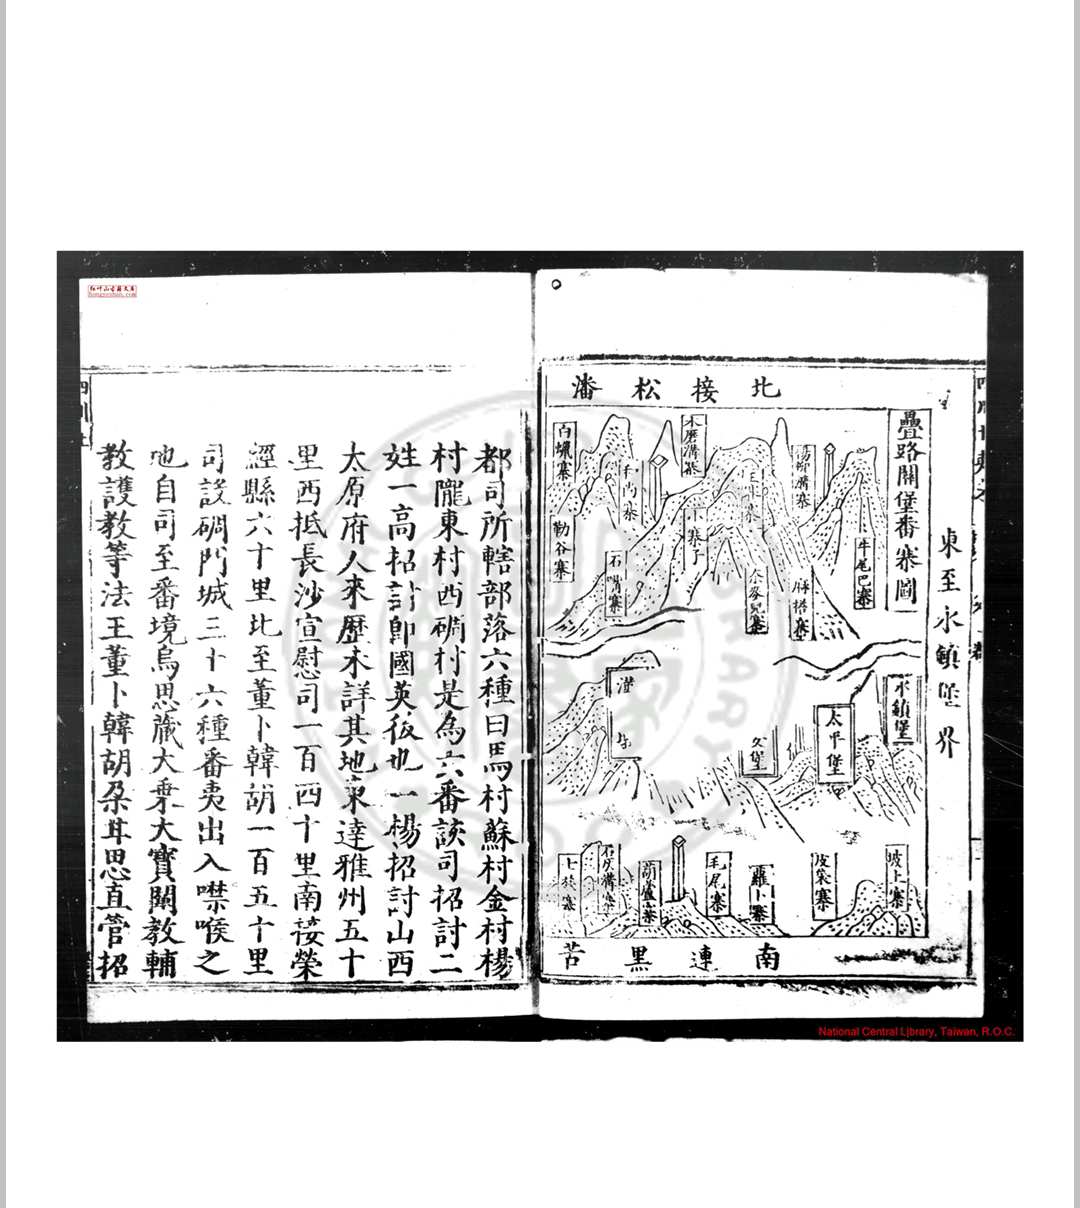 疊路關堡番寨圖
東至永鎮堡界
北接松潘
白蠟寨
勒谷寨
石嘴寨
小寨子
牛尾巴寨
太平堡
上
石灰溝寨
葫蘆寨
毛尾寨
蘿卜寨
皮袋寨
坡上寨
南連黑苦
都司所轄部落六種曰馬村蘇村金村楊
村隴東村西碉村是為六番該司招討二
姓一高招討即國英後也一楊招討山西
太原府人來歷未詳其地東達雅州五十
里西抵長沙宣慰司一百四十里南接榮
經縣六十里北至董卜韓胡一百五十里
司設碉門城三十六種番夷出入噤喉之
地自司至番境烏思藏大乘大寶闡教輔
教護教等法王董卜韓胡朶甘思直管招
紅叶山古籍文庫
hongyeshan.com
National Central Library, Taiwan, R.O.C.